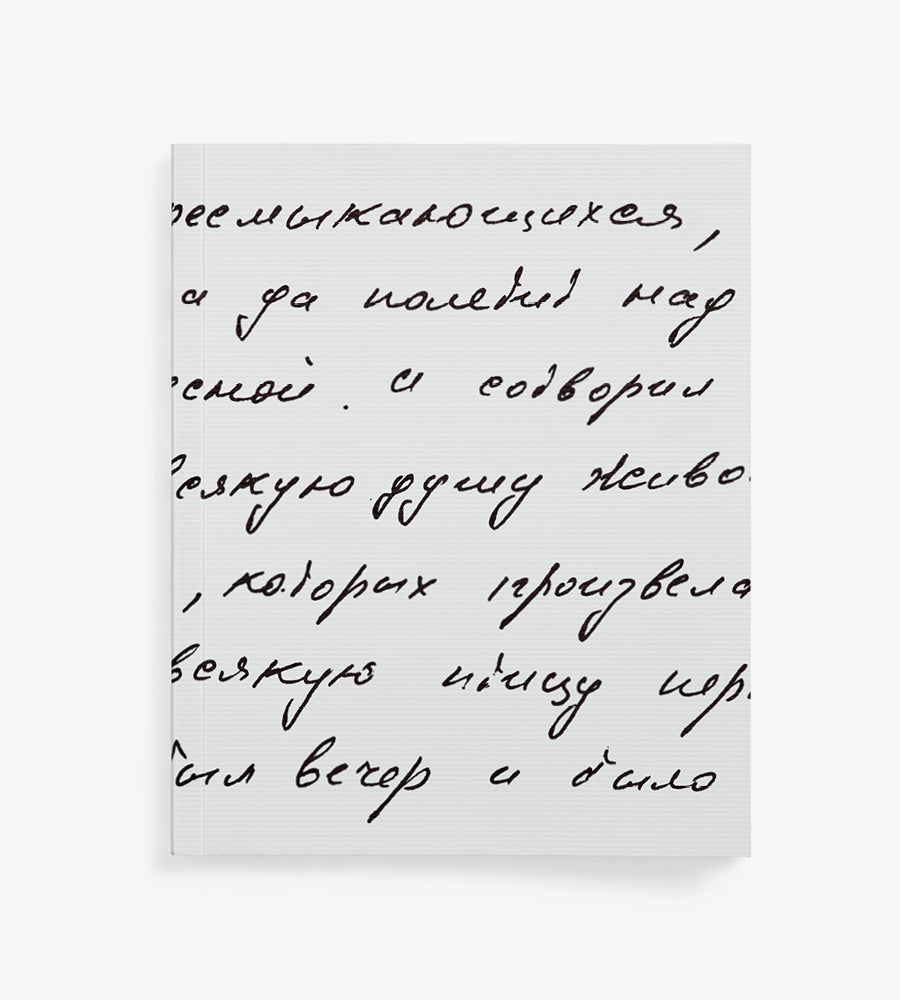 ресмыкающихся,
а да полетит над
есной. И сотворил
всякую душу живо
, которых произвела
всякую птицу пер
был вечер и было